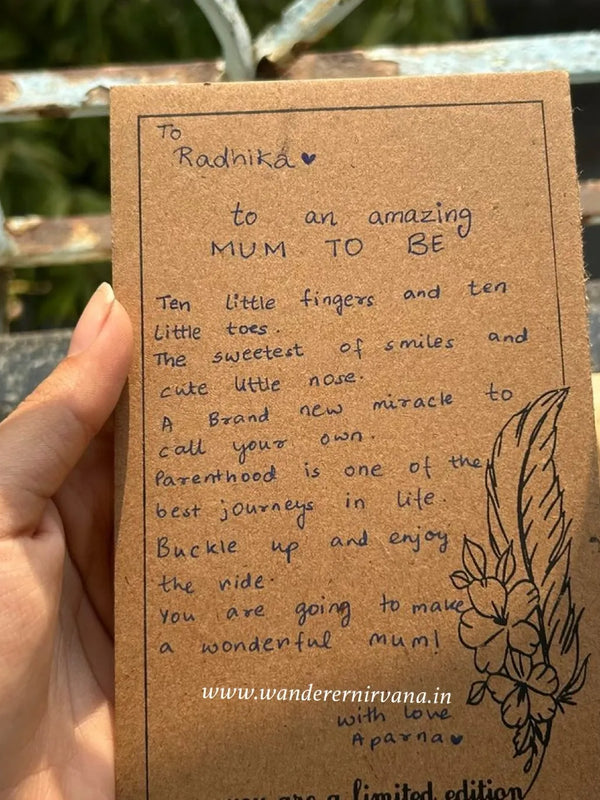 To
Radhika ♥
to an amazing
MUM TO BE
Ten little fingers and ten
little toes.
The sweetest of smiles and
cute little nose.
A Brand new miracle to
call your own.
Parenthood is one of the
best journeys in life.
Buckle up and enjoy
the ride.
You are going to make
a wonderful mum!
www.wanderernirvana.in
with love
Aparna ♥
you are a limited edition